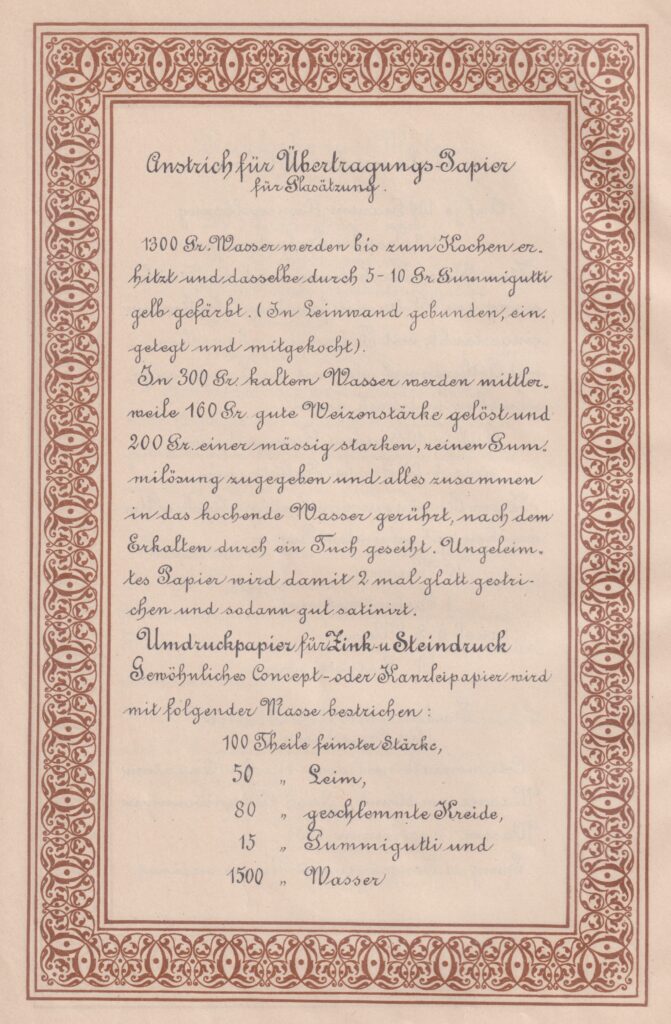 Anstrich für Übertragungs-Papier
für Glasätzung.
1300 Gr. Wasser werden bis zum Kochen er-
hitzt und dasselbe durch 5-10 Gr Gummigutti
gelb gefärbt. (In Leinwand gebunden, ein-
gelegt und mitgekocht).
In 300 Gr. kaltem Wasser werden mittler-
weile 160 Gr. gute Weizenstärke gelöst und
200 Gr. einer mässig starken, reinen Gum-
milösung zugegeben und alles zusammen
in das kochende Wasser gerührt, nach dem
Erkalten durch ein Tuch geseiht. Ungeleim-
tes Papier wird damit 2 mal glatt gestri-
chen und sodann gut satinirt.
Umdruckpapier für Zink- u Steindruck
Gewöhnliches Concept- oder Kanzleipapier wird
mit folgender Masse bestrichen:
100 Theile feinster Stärke,
50 „ Leim,
80 „ geschlemmte Kreide,
15 „ Gummigutti und
1500 „ Wasser